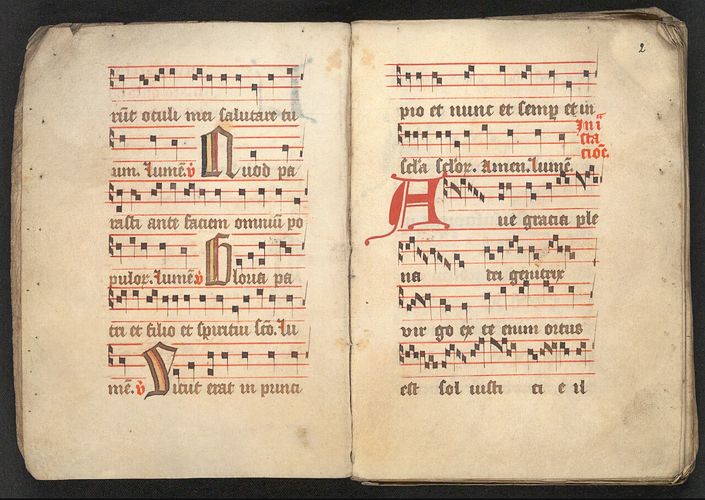 rūt oculi mei salutare tu
um. Lumē. v̄ Quod pa
rasti ante faciem omniū po
pulor. Lumē. v̄ Gloria pa
tri et filio et spiritui scō. Lu
mē. v̄ Sicut erat in princi
2
pio et nunc et semp et in
In i
sta
tiōe.
scl'a sclor. Amen. Lumē.
Aue gratia ple
na dei genitrix
vir go ex te enim ortus
est sol iusti ci e il